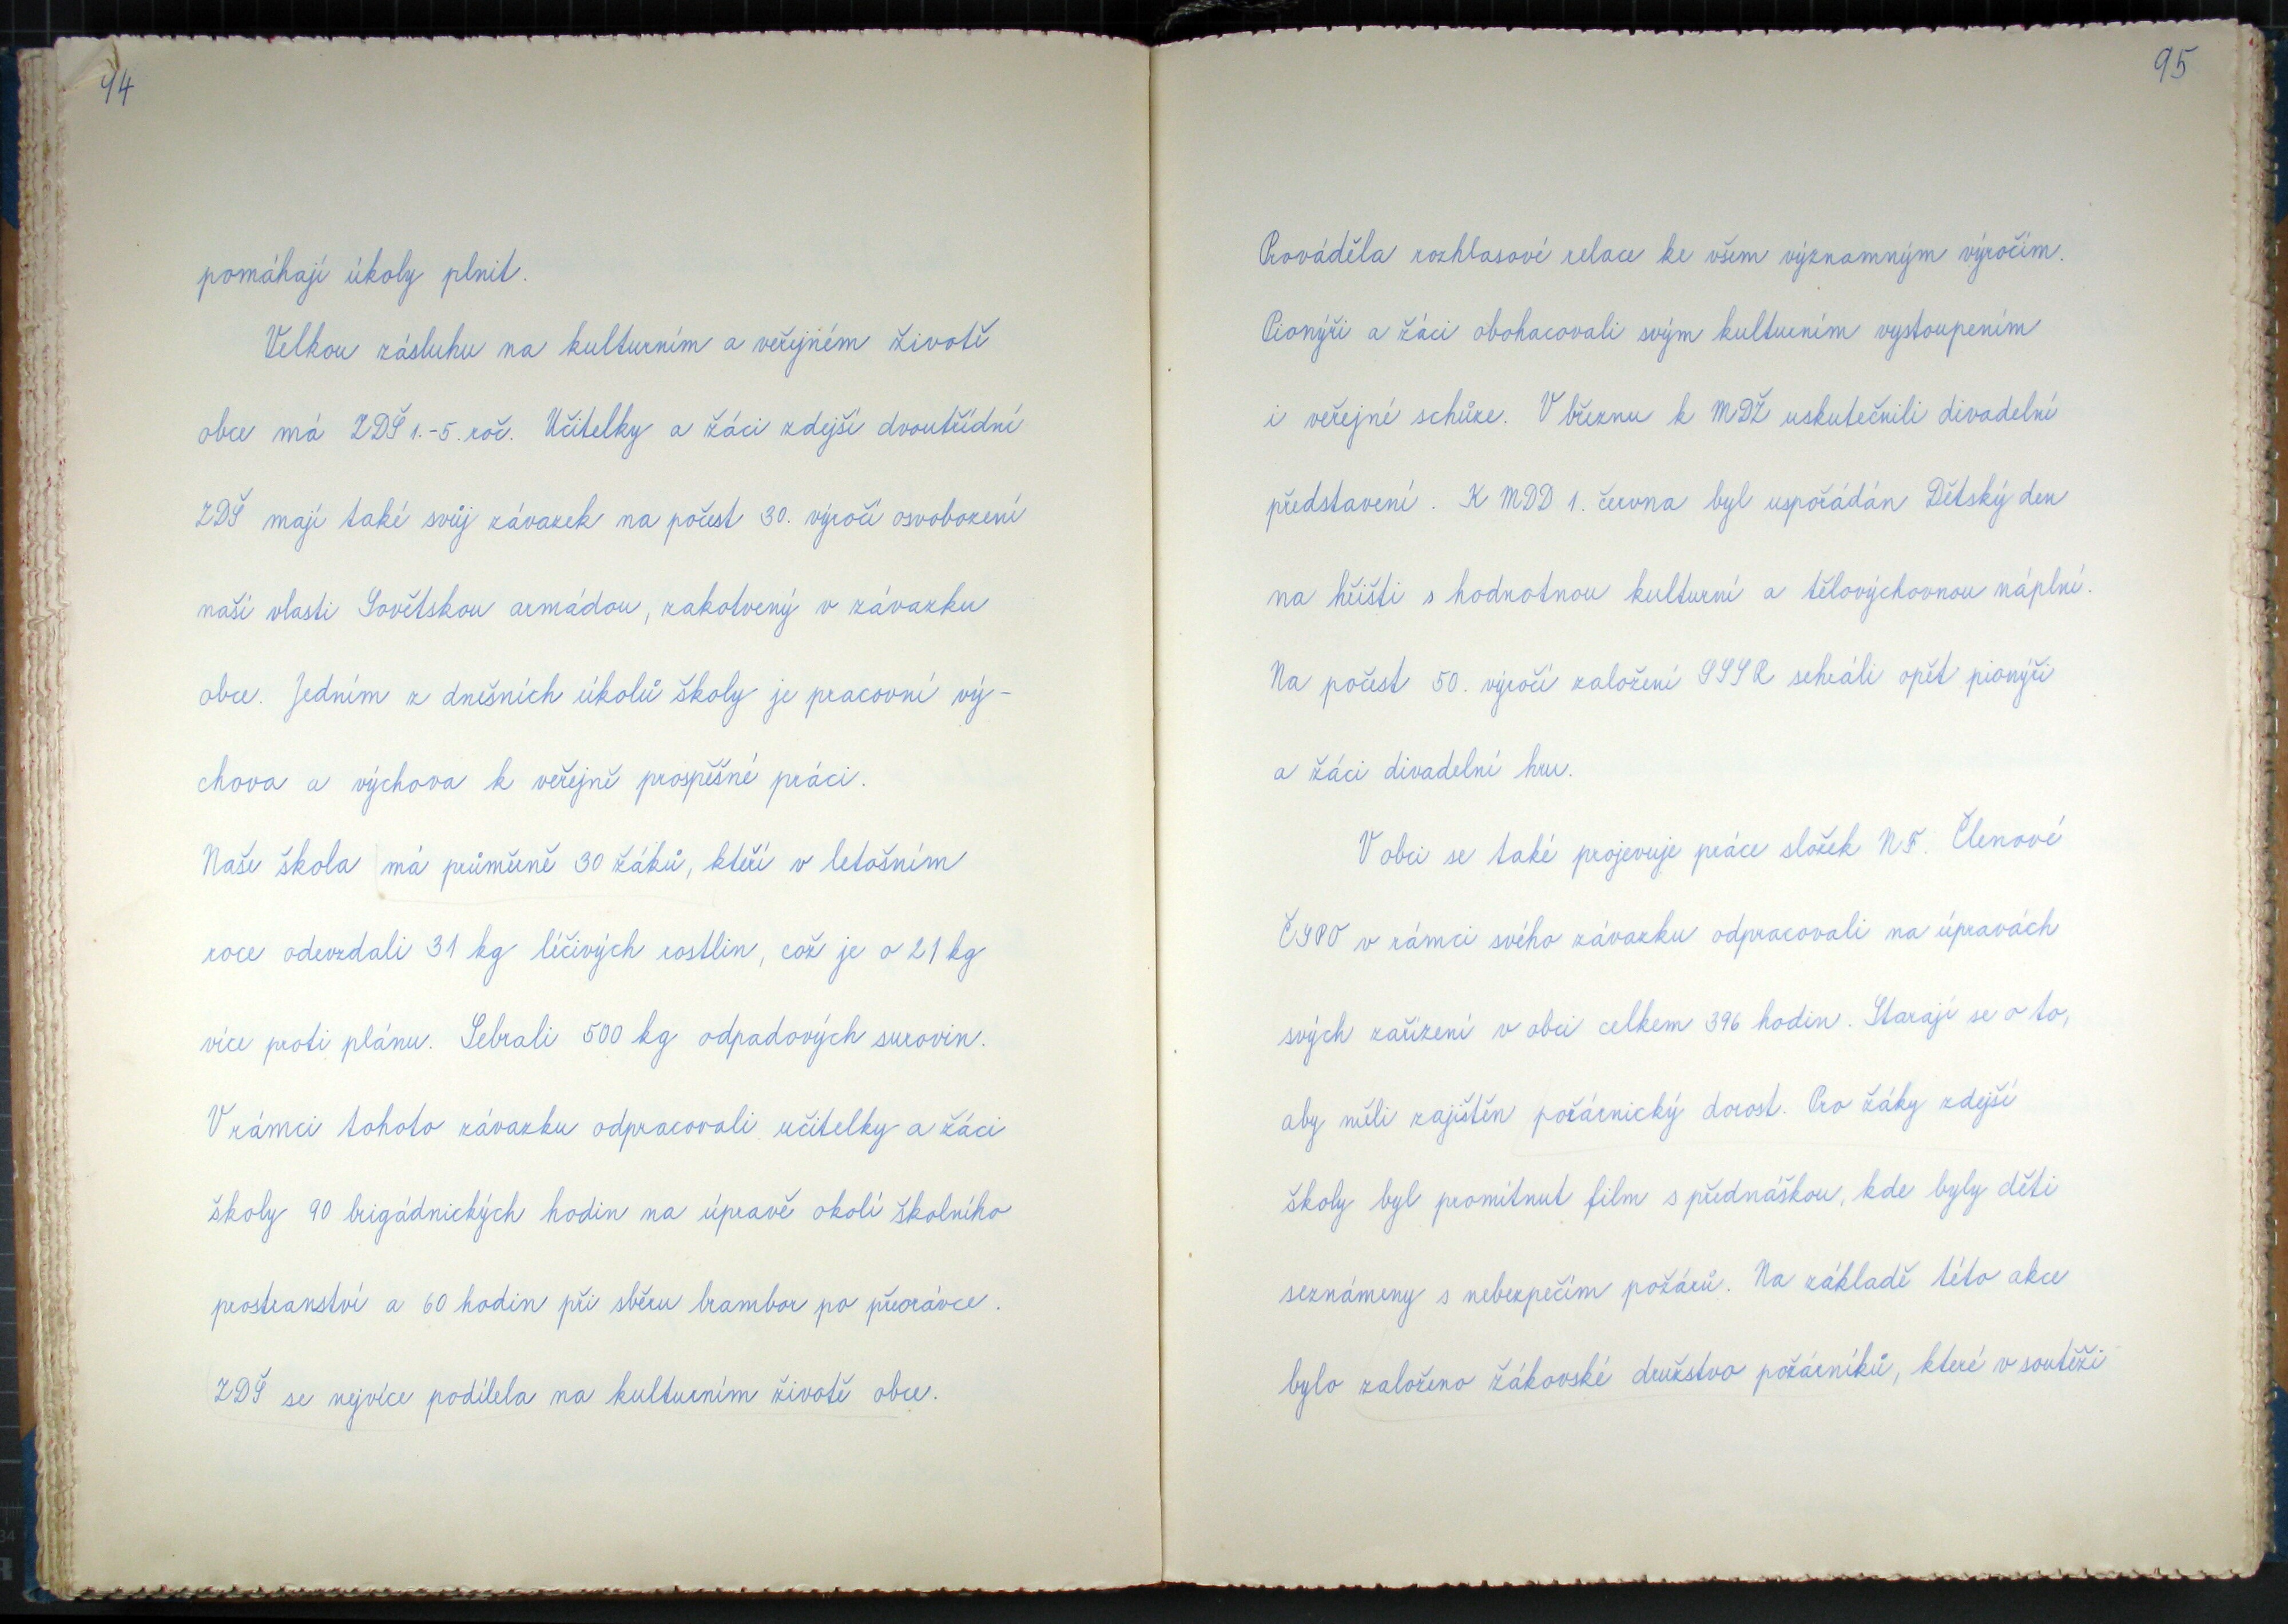 94
pomáhají úkoly plnit.
Velkou zásluhu na kulturním a veřejném životě
obce má ZDŠ 1.-5. roč. Učitelky a žáci zdejší dvoutřídní
ZDŠ mají také svůj závazek na počest 30. výročí osvobození
naší vlasti Sovětskou armádou, zakotvený v závazku
obce. Jedním z dnešních úkolů školy je pracovní vý-
chova a výchova k veřejně prospěšné práci.
Naše škola má průměrně 30 žáků, kteří v letošním
roce odevzdali 31 kg léčivých rostlin, což je o 21 kg
více proti plánu. Sebrali 500 kg odpadových surovin.
V rámci tohoto závazku odpracovali učitelky a žáci
školy 90 brigádnických hodin na úpravě okolí školního
prostranství a 60 hodin při sběru brambor po přeorávce.
ZDŠ se nejvíce podílela na kulturním životě obce.
95
Prováděla rozhlasové relace ke všem významným výročím.
Pionýři a žáci obohacovali svým kulturním vystoupením
i veřejné schůze. V březnu k MDŽ uskutečnili divadelní
představení. K MDD 1. června byl uspořádán Dětský den
na hřišti s hodnotnou kulturní a tělovýchovnou náplní.
Na počest 50. výročí založení SSSR sehráli opět pionýři
a žáci divadelní hru.
V obci se také projevuje práce složek NF. Členové
ČSPO v rámci svého závazku odpracovali na úpravách
svých zařízení v obci celkem 396 hodin. Starají se o to,
aby měli zajištěn požárnický dorost. Pro žáky zdejší
školy byl promítnut film s přednáškou, kde byly děti
seznámeny s nebezpečím požárů. Na základě této akce
bylo založeno žákovské družstvo požárníků, které v soutěži